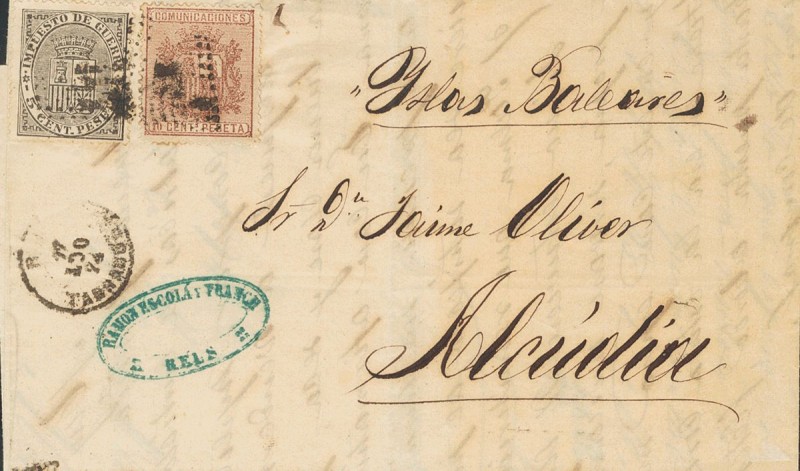 IMPUESTO DE GUERRA
5 CENT. PESETA
COMUNICACIONES
10 CENT. PESETA
"Yslas Baleares"
Sr Dn Jaime Oliver
Alcúdia
AGO
74
RAMON ESCOLÁ Y FRANCH
REUS